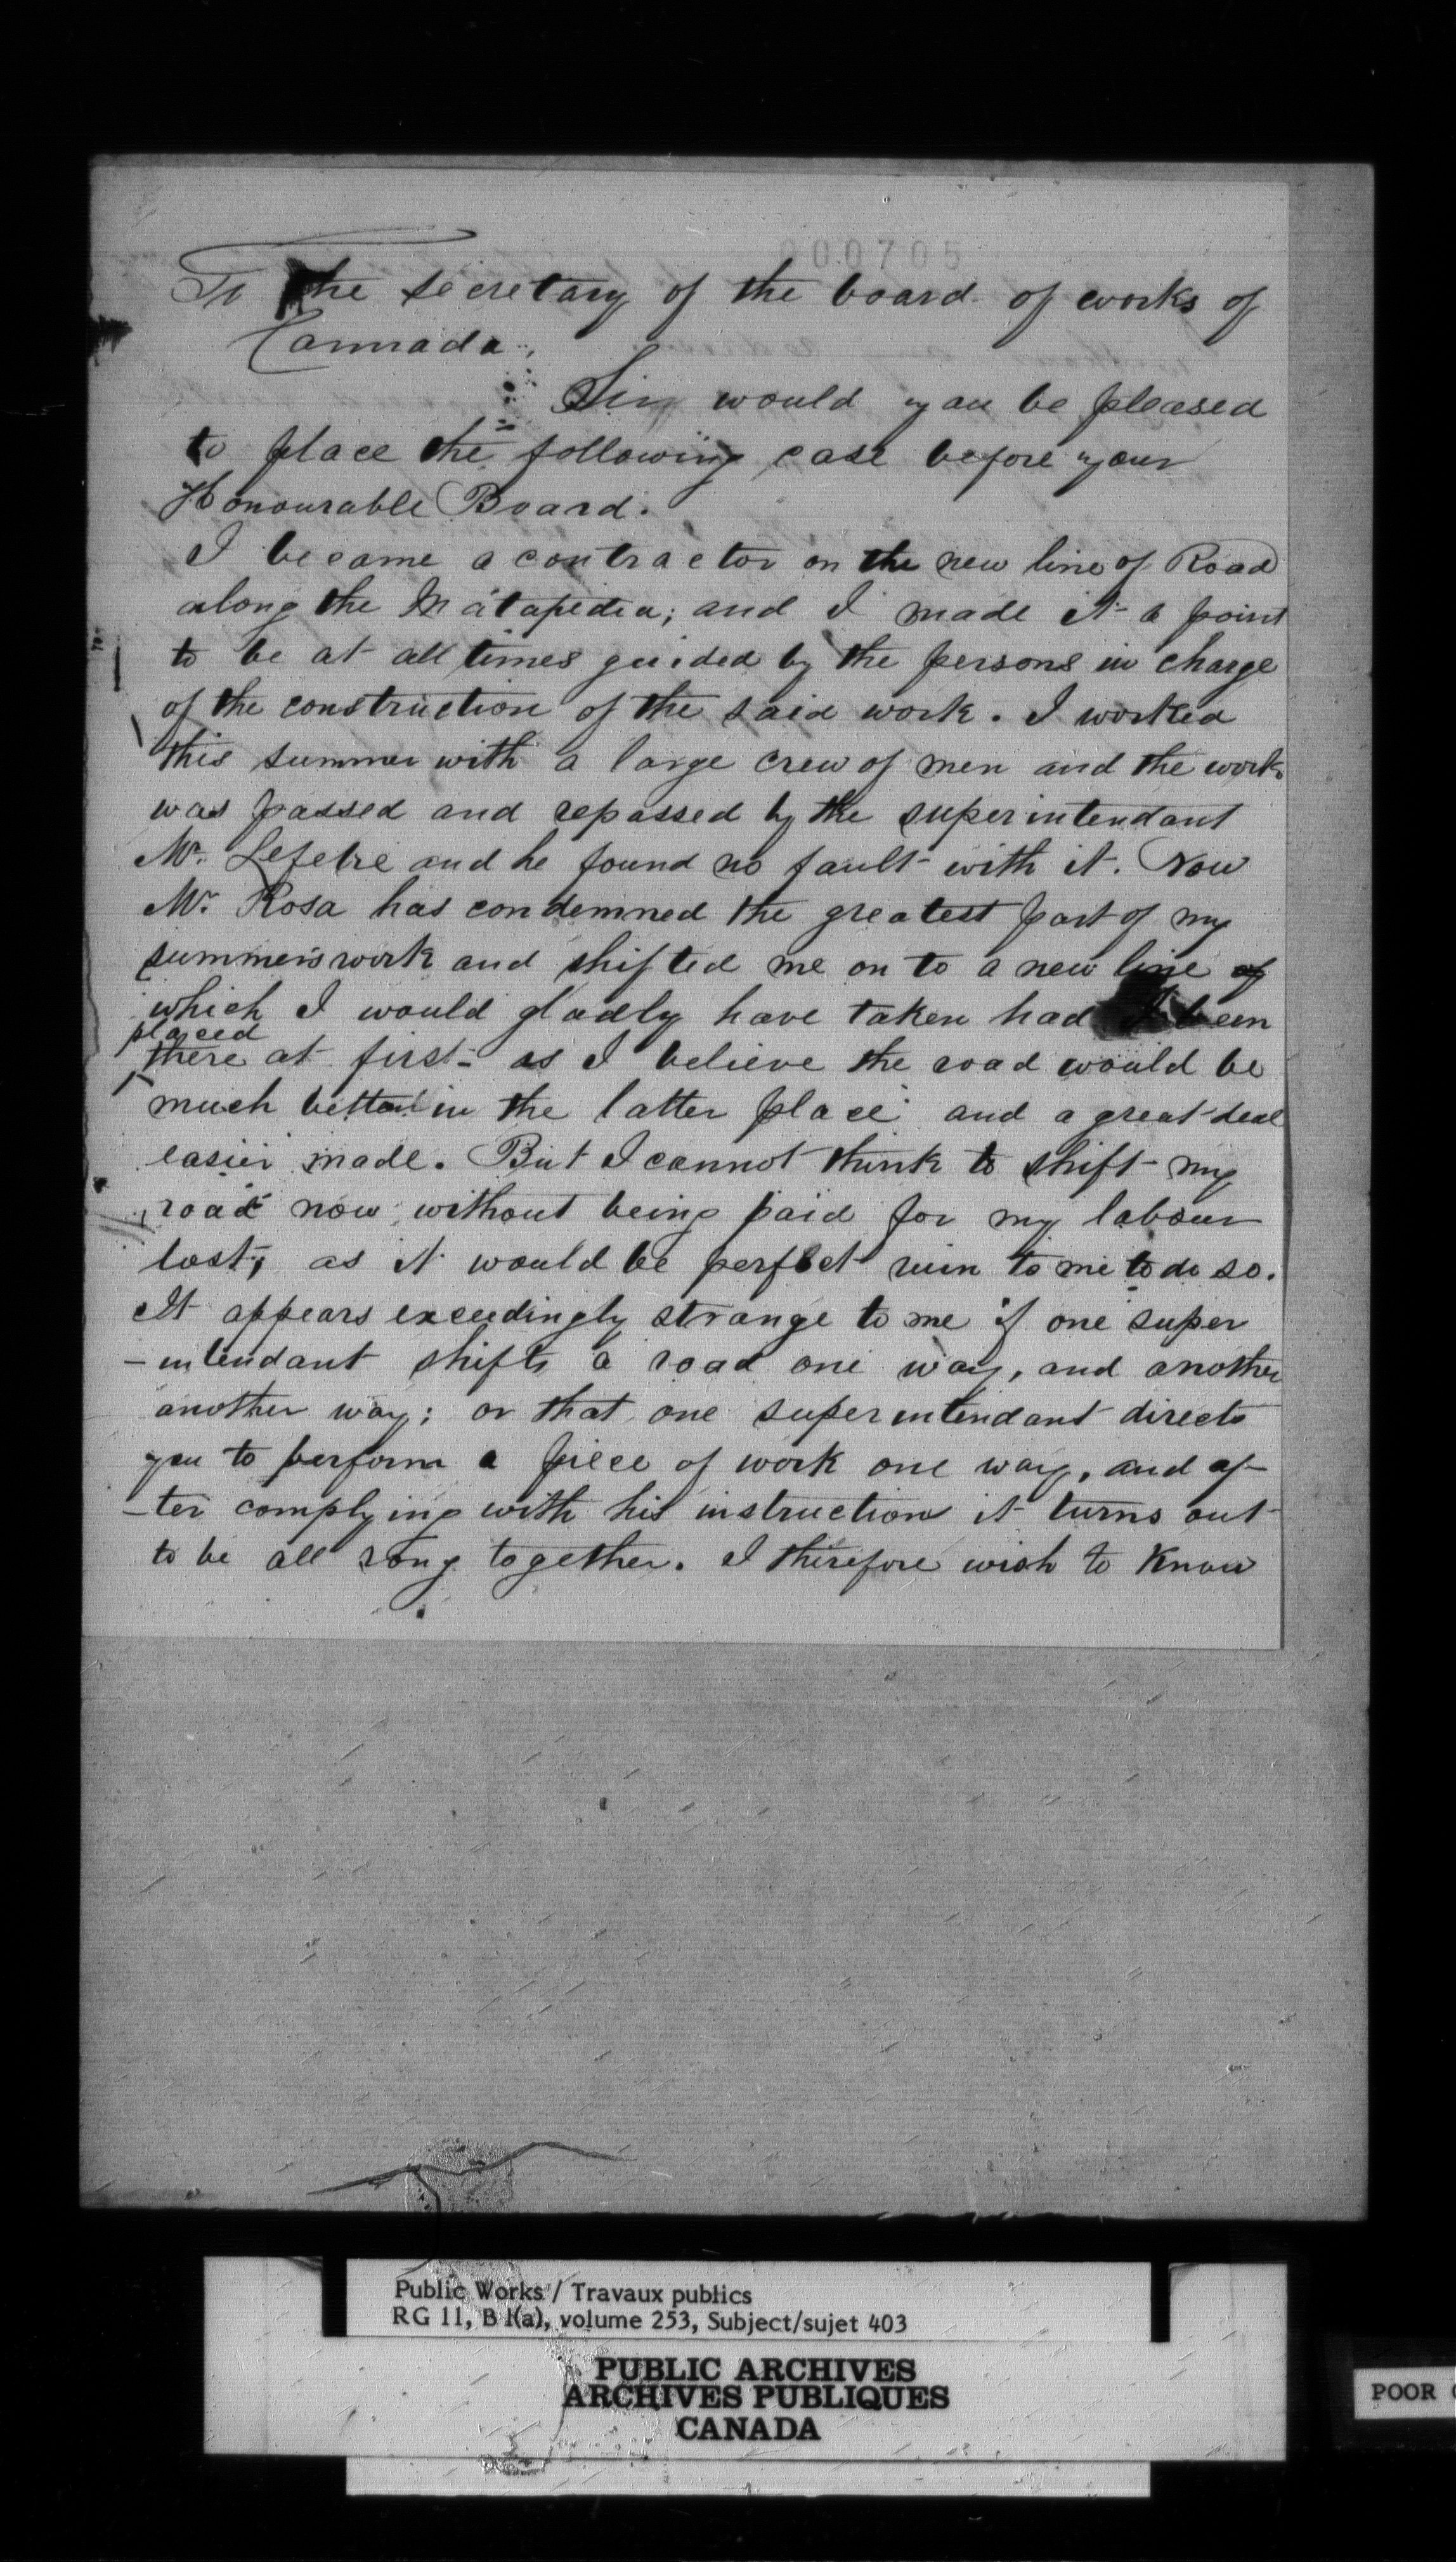 000705
To the secretary of the board of works of
Cannada.
Sir would you be pleased
to place the following case before your
Honourable Board.
I became a contractor on the new line of Road
along the Matapedia; and I made it a point
to be at all times guided by the persons in charge
of the construction of the said work. I worked
this summer with a large crew of men and the work
was passed and repassed by the superintendant
Mr. Lefebre and he found no fault with it. Now
Mr. Rosa has condemned the greatest part of my
summers work and shifted me on to a new line of
which I would gladly have taken had I been
placed
there at first - as I believe the road would be
much better in the latter place and a great deal
easier made. But I cannot think to shift my
road now without being paid for my labour
lost; as it would be perfect ruin to me to do so.
It appears exceedingly strange to me if one super
-intendant shifts a road one way, and another
another way; or that one superintendant directs
you to perform a piece of work one way, and af-
-ter complying with his instruction it turns out
to be all rong together. I therefore wish to know
Public Works / Travaux publics
RG 11, B 1(a), volume 253, Subject/sujet 403
PUBLIC ARCHIVES
ARCHIVES PUBLIQUES
CANADA
POOR